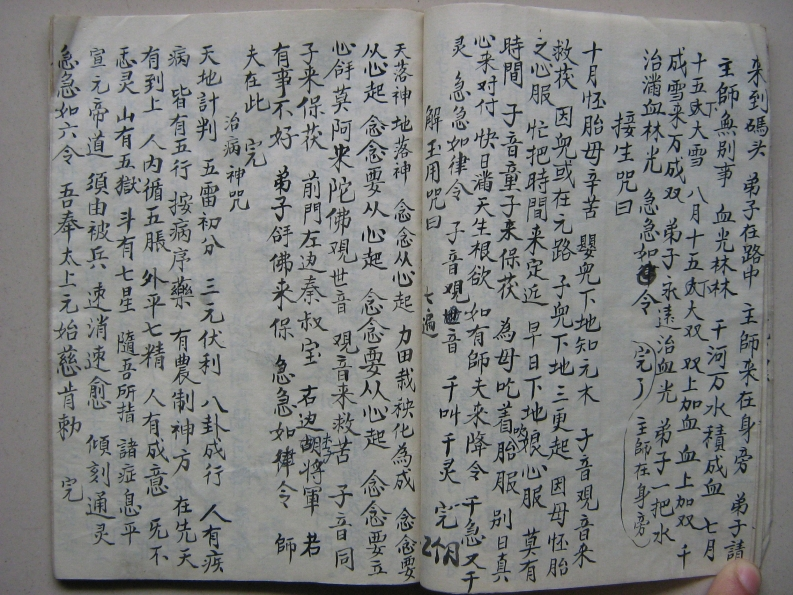 来到碼头 弟子在路中 主師来在身旁 弟子請
主師無別事 血光林林 千河万水積成血 七月
十五 大雪 八月十五 大双 双上加血 血上加双 千
成雪来万成双 弟子永遠治血光 弟子一把水
治满血林光 急急如令 完了 主師在身旁
接生咒曰
十月怀胎母辛苦 嬰兒下地知元木 子音觀音来
救茯 因兒或在元路 子兒下地三更起 因母怀胎
之心服 忙把時間来定近 早日下地娘心服 莫有
時間 子音童子来保茯 為母吃着胎服 别日真
心来对付 快日满天生根欲 如有師夫来降令 千急又千
灵 急急如律令 子音觀世音 千叫千灵 完 2个月
解玉用咒曰 七遍
天落神地落神 念念从心起 力田栽秧化為成 念念要
从心起 念念要从心起 念念要从心起 念念要立
心舒莫阿来陀佛觀世音 觀音来救苦 子音同
子来保茯 前門左边秦叔宝 右边胡将軍 若
有事不好 弟子舒佛来保 急急如律令 師
夫在此 完
治病神咒
天地計判 五雷初分 三元伏利 八卦成行 人有疾
病 皆有五行 按病序藥 有農制神方 在先天
有到上 人内循五脹 外平七精 人有成意 死不
忑灵 山有五獄 斗有七星 隨吾所指 諸症息平
宣元帝道 須由被兵 速消速愈 傾刻通灵
急急如六令 吾奉太上元始慈肯勅 完